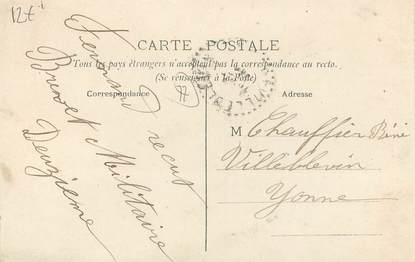 12€
CARTE POSTALE
Tous les pays étrangers n'acceptent pas la correspondance au recto.
(Se renseigner à la Poste)
Correspondance
Adresse
Fernand recut
Brevet Militaire
Deuzième
M Chauffier Réné
Villeblevin
Yonne